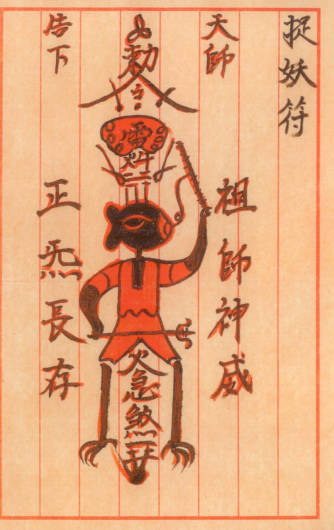 捉妖符
天師
祖師神威
勅令
雷
火急煞
告下
正炁長存